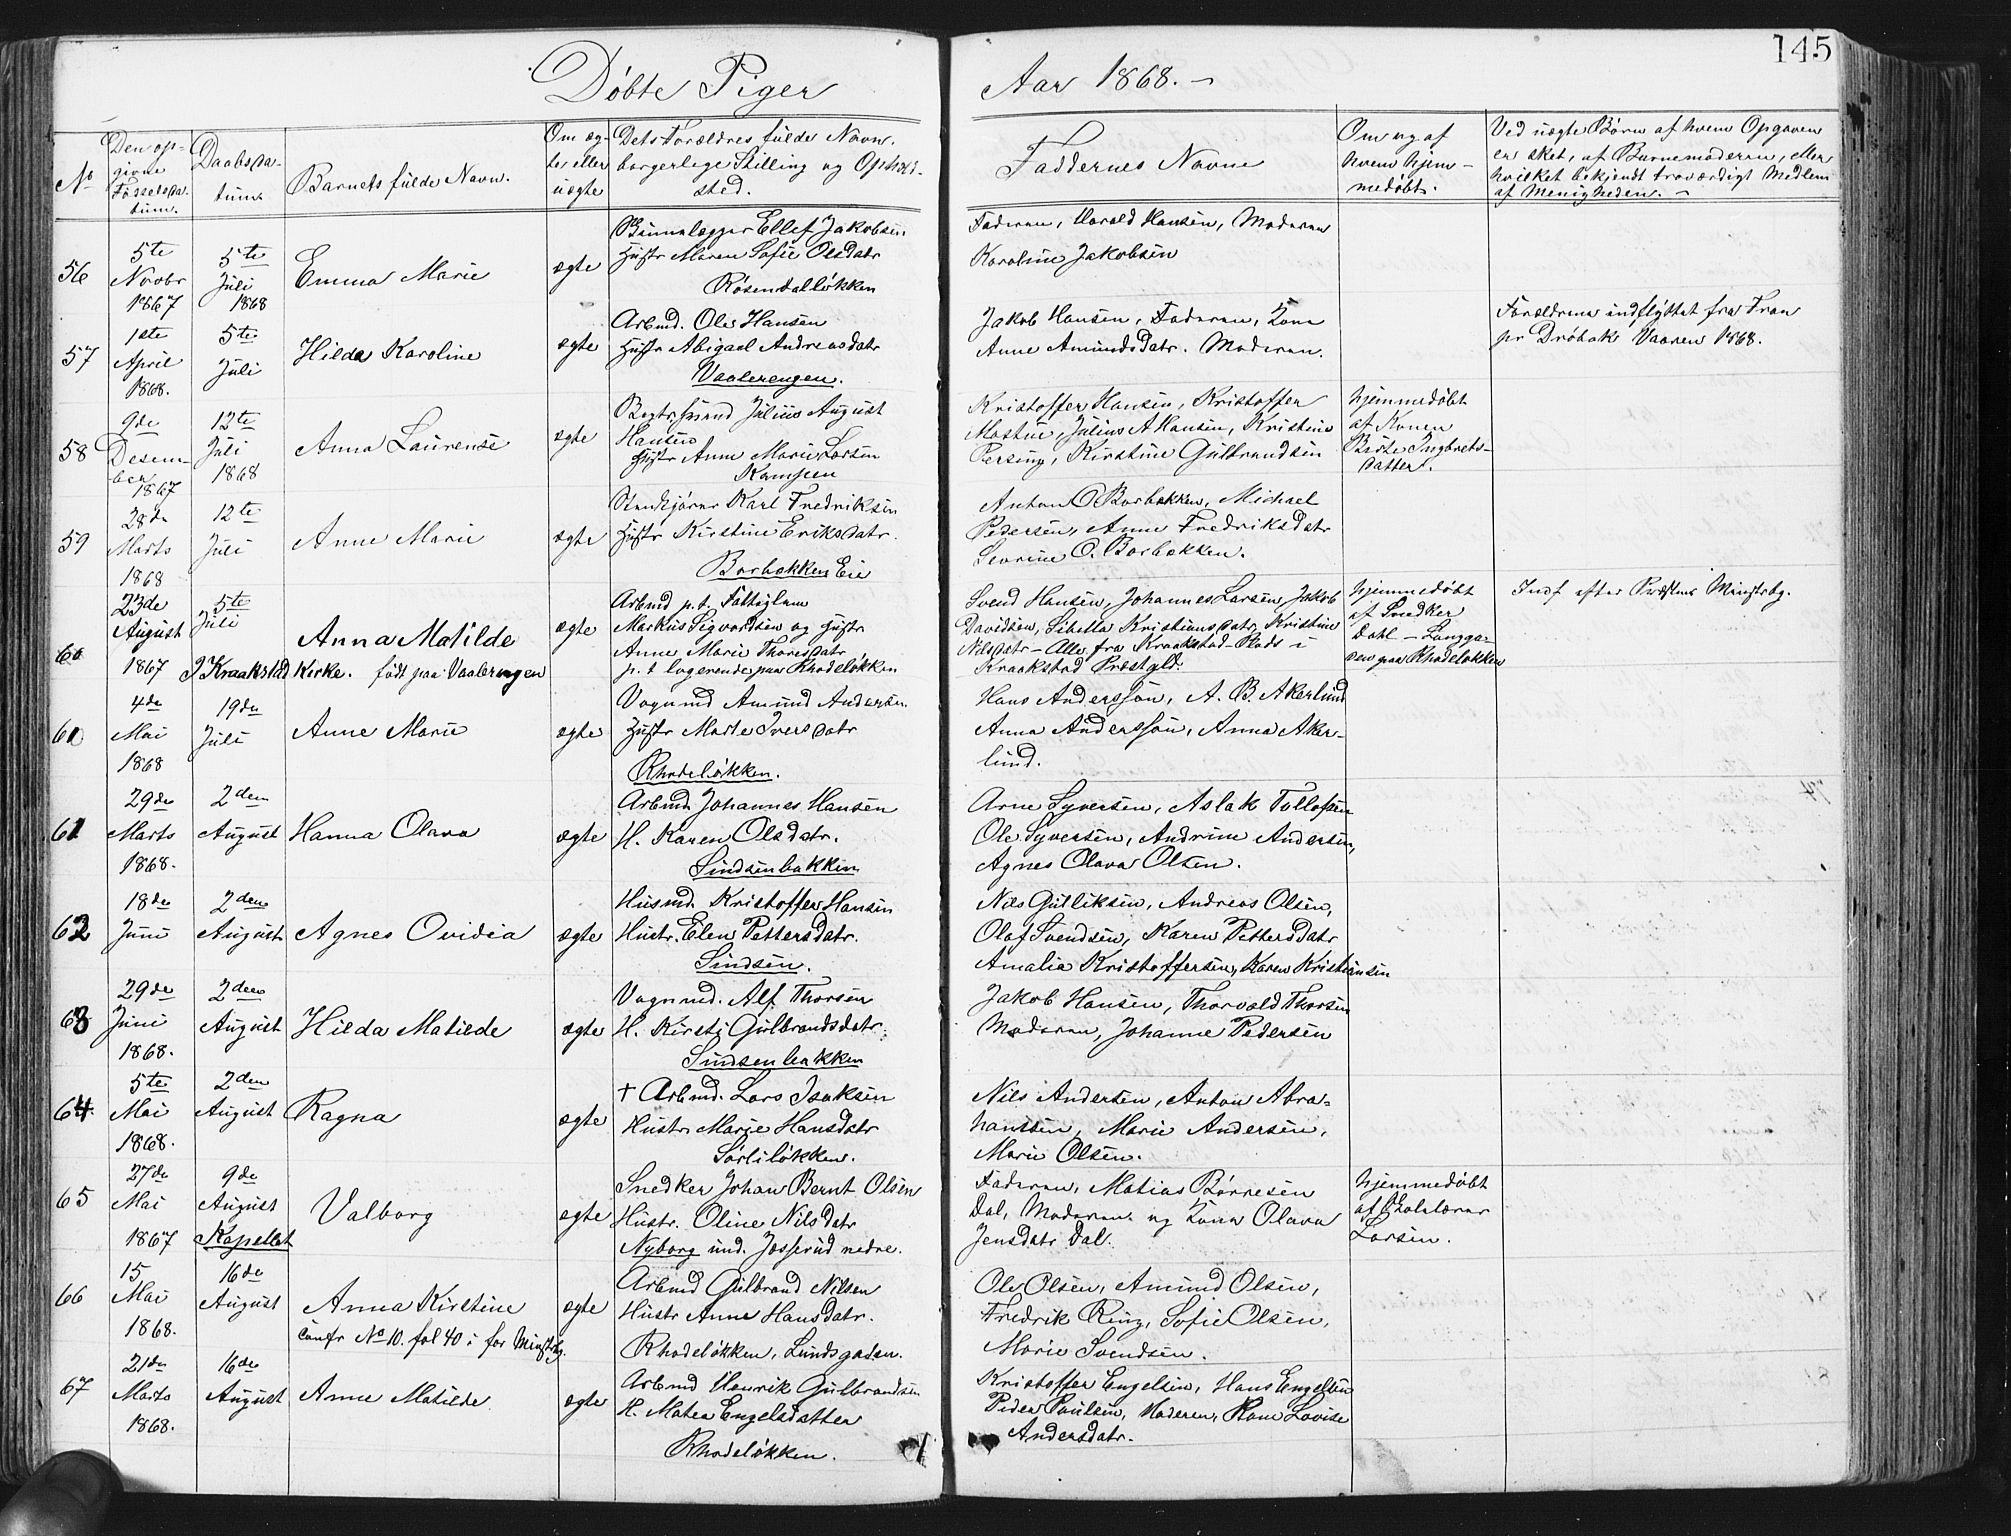 145
Døbte Piger
Aar 1868.
No
Den op-
givne
Fødselsda-
tum.
Daabsda-
tum.
Barnets fulde Navn.
Om æg-
te eller
uægte
Dets Forældres fulde Navn.
borgerlige Stilling og Opholds-
sted.
Faddernes Navne
Om og af
hvem hjem-
medøbt.
Ved uægte Børn af hvem Opgaven
er sket, af Barnemoderen, eller
hvilket bekjendt troværdigt Medlem
af Menigheden.
56
5te
Novbr
1867
5te
Juli
1868
Emma Marie
ægte
Ellef Jakobsen
Hustr Maren Sofie Olsdatr
Rosendalløkken
Faderen, Harald Hansen, Moderen
Karoline Jakobsen
57
1ste
April
1868.
5te
Juli
Hilda Karoline
ægte
Arbmd. Ole Hansen
Hustr Abigael Andreasdatr
Vaalerengen.
Jakob Hansen, Faderen, Kone
Anne Amundsdatr. Moderen.
Forældrene indflyttet fra Fron
pr Drøbak Vaaren 1868.
58
9de
Desem-
ber
1867
12te
Juli
1868
Anna Laurense
ægte
Julius August
Hansen
Hustr Anne Marie Larsen
Kampen
Kristoffer Hansen, Kristoffer
Julius A Hansen, Kristine
Kirstine Gulbrandsen
hjemmedøbt
af Konen
Ingbrets-
datter.
59
28de
Marts
1868
12te
Juli
Anne Marie
ægte
Karl Fredriksen
Hustr Kirstine Eriksdatr.
Borbakken Eie
Anton O Borbakken, Michael
Pedersen, Anne Fredriksdatr
Severine O. Borbakken.
60
23de
August
1867
5te
Juli
I Kraakstad Kirke. født paa Vaalerengen
Anna Matilde
ægte
Arbmd p.t. Fattiglem
Markus Sigvardsen og Hustr
Anne Marie Thoresdatr
p.t logerende paa Rhodeløkken
Svend Hansen, Johannes Larsen, Jakob
Davidsen, Sibella Kristiansdatr, Kristine
Nilsdatr - Alle fra Kraakstad - Plads i
Kraakstad Præstgld.
hjemmedøbt
af Snedker
Dahl - Langga-
den paa Rhodeløkken
Indf efter Præstens Ministrbg.
61
4de
Mai
1868
19de
Juli
Anne Marie
ægte
Vognmd Amund Andersen.
Hustr Marte Iversdatr
Rhodeløkken.
Hans Andersson, A. B. Akerlund
Anna Andersson, Anna Aker-
lund.
61
29de
Marts
1868.
2den
August
Hanna Olava
ægte
Arbmd Johannes Hansen
H. Karen Olsdatr.
Sindsenbakken
Arne Syversen, Aslak Tollofsen
Ole Syversen, Andrine Andersen,
Agnes Olava Olsen.
62
18de
Juni
2den
August
Agnes Ovidia
ægte
Husmd. Kristoffer Hansen
Hustr. Elen Pettersdatr.
Sindsen.
Nils Gulliksen, Andreas Olsen,
Olaf Svendsen, Karen Pettersdatr
Amalia Kristoffersen, Karen Kristiansen
63
29de
Juni
1868.
2den
August
Hilda Matilde
ægte
Vognmd. Alf Thorsen
H. Kirsti Gulbrandsdatr.
Sindsenbakken
Jakob Hansen, Thorvald Thorsen
Moderen, Johanne Pedersen
64.
5te
Mai
1868.
2den
August
Ragna
ægte
+ Arbmd. Lars Isaksen
Hustr Marie Hansdatr
Sørliløkken.
Nils Andersen, Anton Abra-
hamsen, Marie Andersen,
Marie Olsen.
65
27de
Mai
1867
9de
August
Kapellet
Valborg
ægte
Snedker Johan Bernt Olsen
Hustr. Oline Nilsdatr
Nyborg und. Josserud nedre.
Faderen, Matias Børresen
Dal, Moderen og Kone Olava
Jensdatr Dal.
hjemmedøbt
af Skolelærer
Larsen.
66
15
Mai
1868.
16de
August
Anna Kirstine
Confr No 10. fol 40 i før Minstrbg.
ægte
Arbmd Gulbrand Nilsen
Hustr Anne Hansdatr.
Rhodeløkken, Lundsgaden.
Ole Olsen, Amund Olsen,
Fredrik Ring, Sofie Olsen,
Marie Svendsen.
67
21de
Marts
1868.
16de
August
Anne Matilde
ægte
Arbmd Henrik Gulbrandsen
H. Matea Engelsdatter
Rhodeløkken.
Kristoffer Engelsen, Hans Engelsen
Peder Paulsen, Moderen, Kone Lovise
Andersdatr.